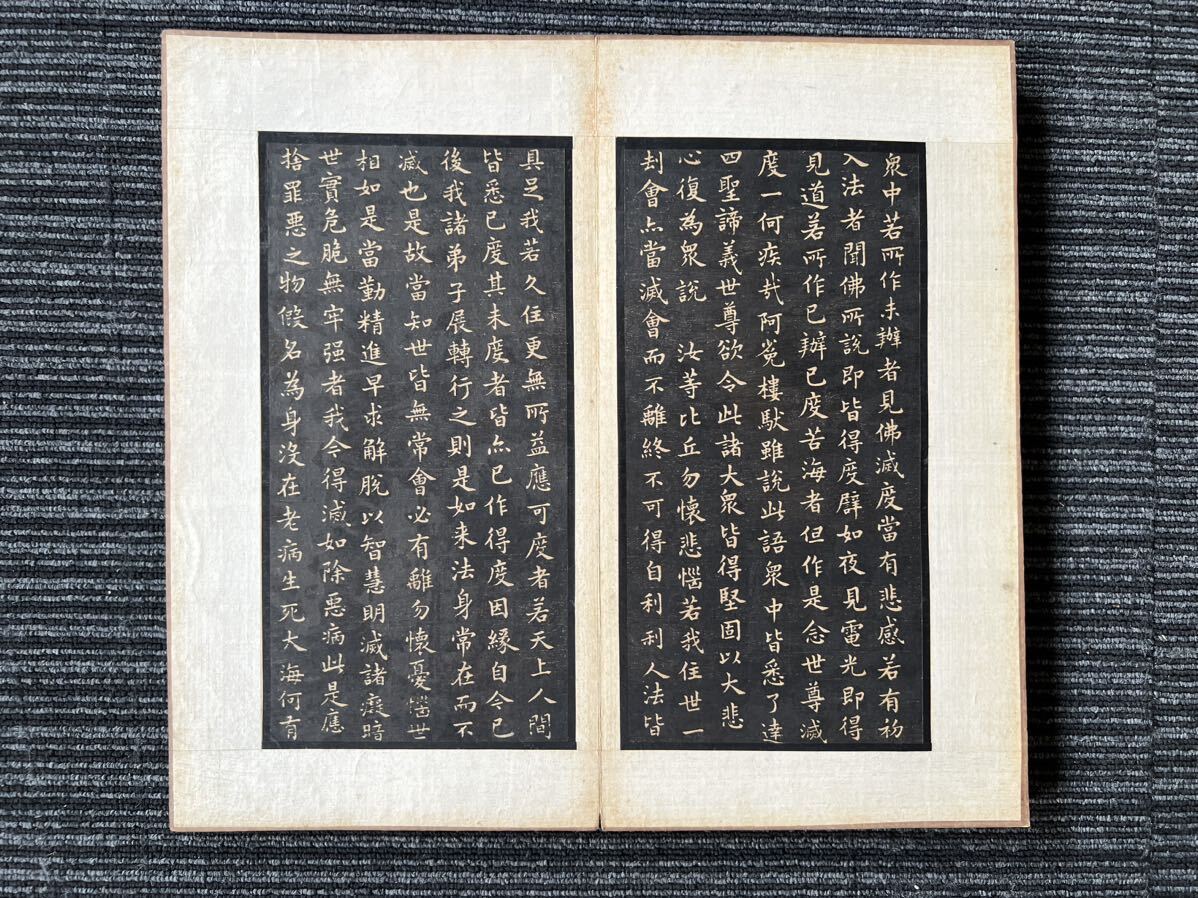 衆中若所作未辦者見佛滅度當有悲感若有初
入法者聞佛所說即皆得度譬如夜見電光即得
見道若所作已辦已度苦海者但作是念世尊滅
度一何疾哉阿㝹樓馱雖說此語衆中皆悉了達
四聖諦義世尊欲令此諸大衆皆得堅固以大悲
心復為衆說　汝等比丘勿懷悲惱若我住世一
劫會亦當滅會而不離終不可得自利利人法皆
具足我若久住更無所益應可度者若天上人間
皆悉已度其未度者皆亦已作得度因緣自今已
後我諸弟子展轉行之則是如来法身常在而不
滅也是故當知世皆無常會必有離勿懷憂惱世
相如是當勤精進早求解脫以智慧明滅諸癡暗
世實危脆無牢强者我今得滅如除惡病此是應
捨罪惡之物假名為身沒在老病生死大海何有